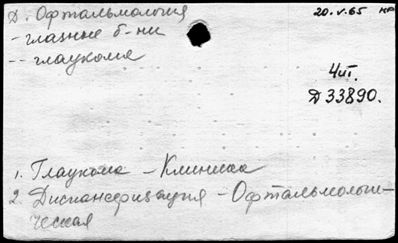 Д. Офтальмология
20.V.65 нр
- глазные б-ни
-- глаукома
4ит.
Д33890.
1. Глаукома - Клиника
2. Диспансеризация - Офтальмологи-
ческая